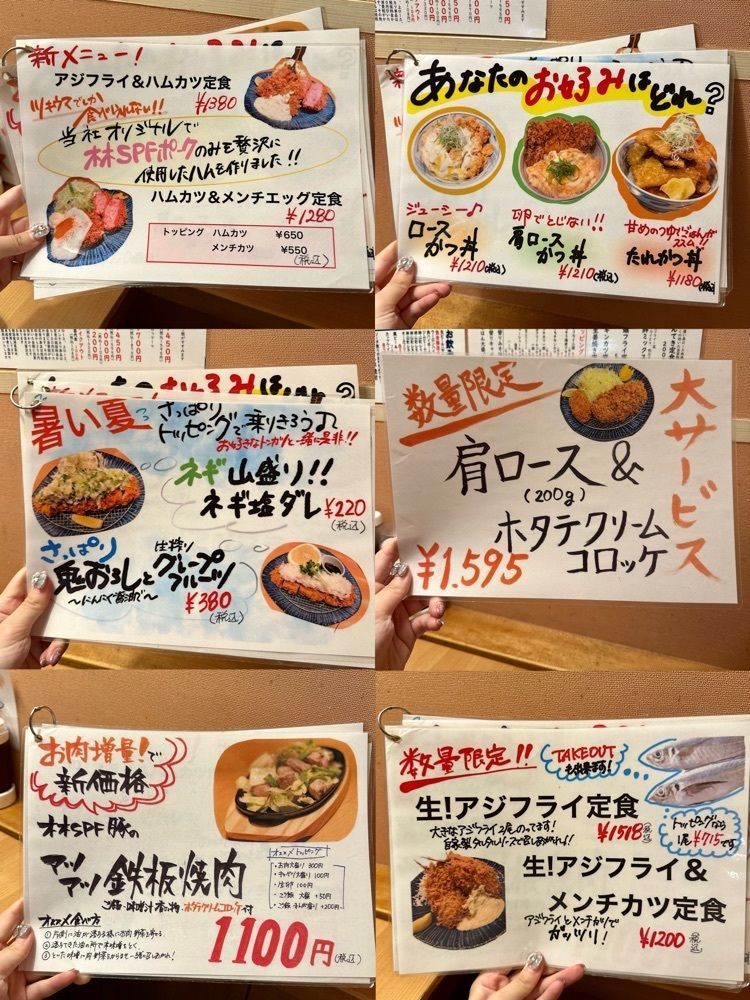 新メニュー!
アジフライ&ハムカツ定食
ツキウマでしか食べられない!! ¥1380
当社オリジナルで
林SPFポークのみを贅沢に
使用したハムを作りました!!
ハムカツ&メンチエッグ定食
¥1280
トッピング ハムカツ ¥650
メンチカツ ¥550
(税込)
あなたのお好みはどれ?
ジューシー♪
ロース
かつ丼
¥1210(税込)
卵でとじない!!
肩ロース
かつ丼
¥1210(税込)
甘めのつゆでごはんが
ススム!!
たれかつ丼
¥1180(税込)
暑い夏
さっぱり
トッピングで乗りきろう♪
お好きなトンカツと一緒に是非!!
ネギ山盛り!!
ネギ塩ダレ ¥220
(税込)
さっぱり
鬼おろしと生搾りグレープフルーツ
〜にんにく醤油で〜
¥380
(税込)
数量限定
大サービス
肩ロース&
(200g)
ホタテクリーム
コロッケ
¥1.595
お肉増量!で
新価格
林SPF豚の
アツアツ鉄板焼肉
ご飯・味噌汁・香の物・ホタテクリームコロッケ付
オススメトッピング
・お肉大盛り 300円
・キャベツ大盛り 100円
・生卵 100円
・ご飯 大盛 +50円
・ご飯 +200円
オススメ食べ方
1100円
(税込)
数量限定!!
TAKEOUT
も出来ます!
生!アジフライ定食
大きなアジフライ2尾のってます!
自家製タルタルソースで召しあがれ!!
¥1518(税込)
トッピングなら
1尾¥715です
生!アジフライ&
メンチカツ定食
アジフライとメンチカツで
ガッツリ!
¥1200(税込)